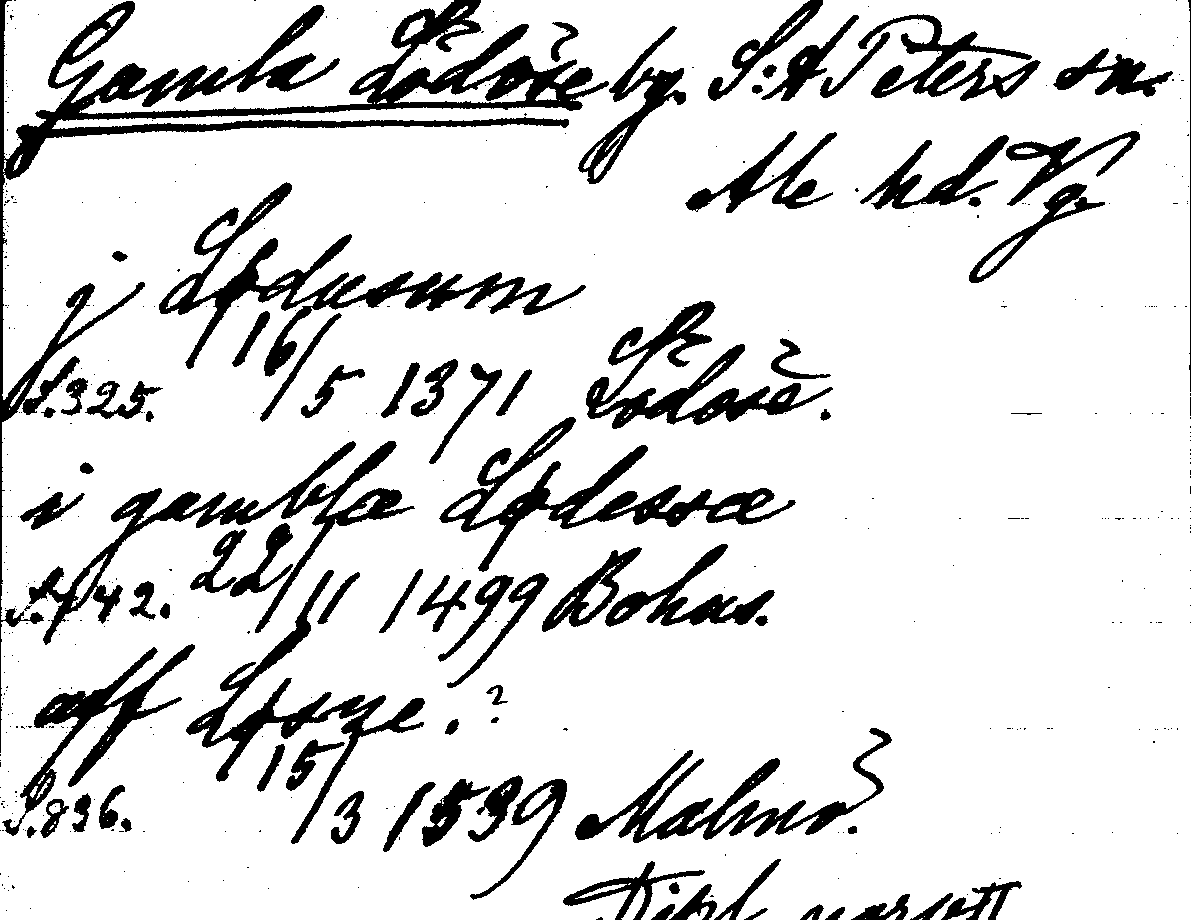 Gamla Lödöse by. S:t Peters sn.
Ale hd. Vg.
j Lødusum
S.325. 16/5 1371 Lödöse.
i gamblæ Lødessæ
S.442. 22/11 1499 Bohus.
aff Løsze.?
S.836. 15/3 1539 Malmö.
Dipl. norv. II